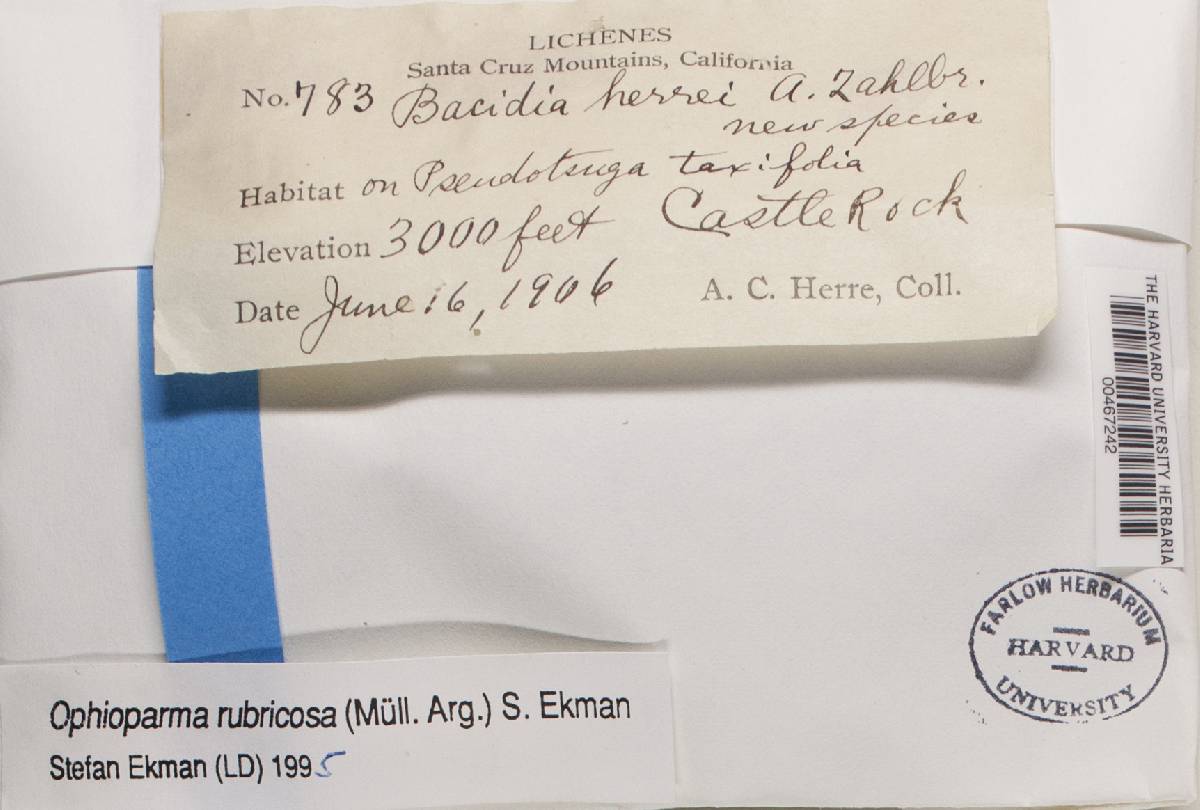 LICHENES
Santa Cruz Mountains, California
No. 783 Bacidia herrei A. Zahlbr.
new species
Habitat on Pseudotsuga taxifolia
Elevation 3000 feet Castle Rock
Date June 16, 1906 A. C. Herre, Coll.
THE HARVARD UNIVERSITY HERBARIA
00467242
FARLOW HERBARIUM
HARVARD
UNIVERSITY
Ophioparma rubricosa (Müll. Arg.) S. Ekman
Stefan Ekman (LD) 1995